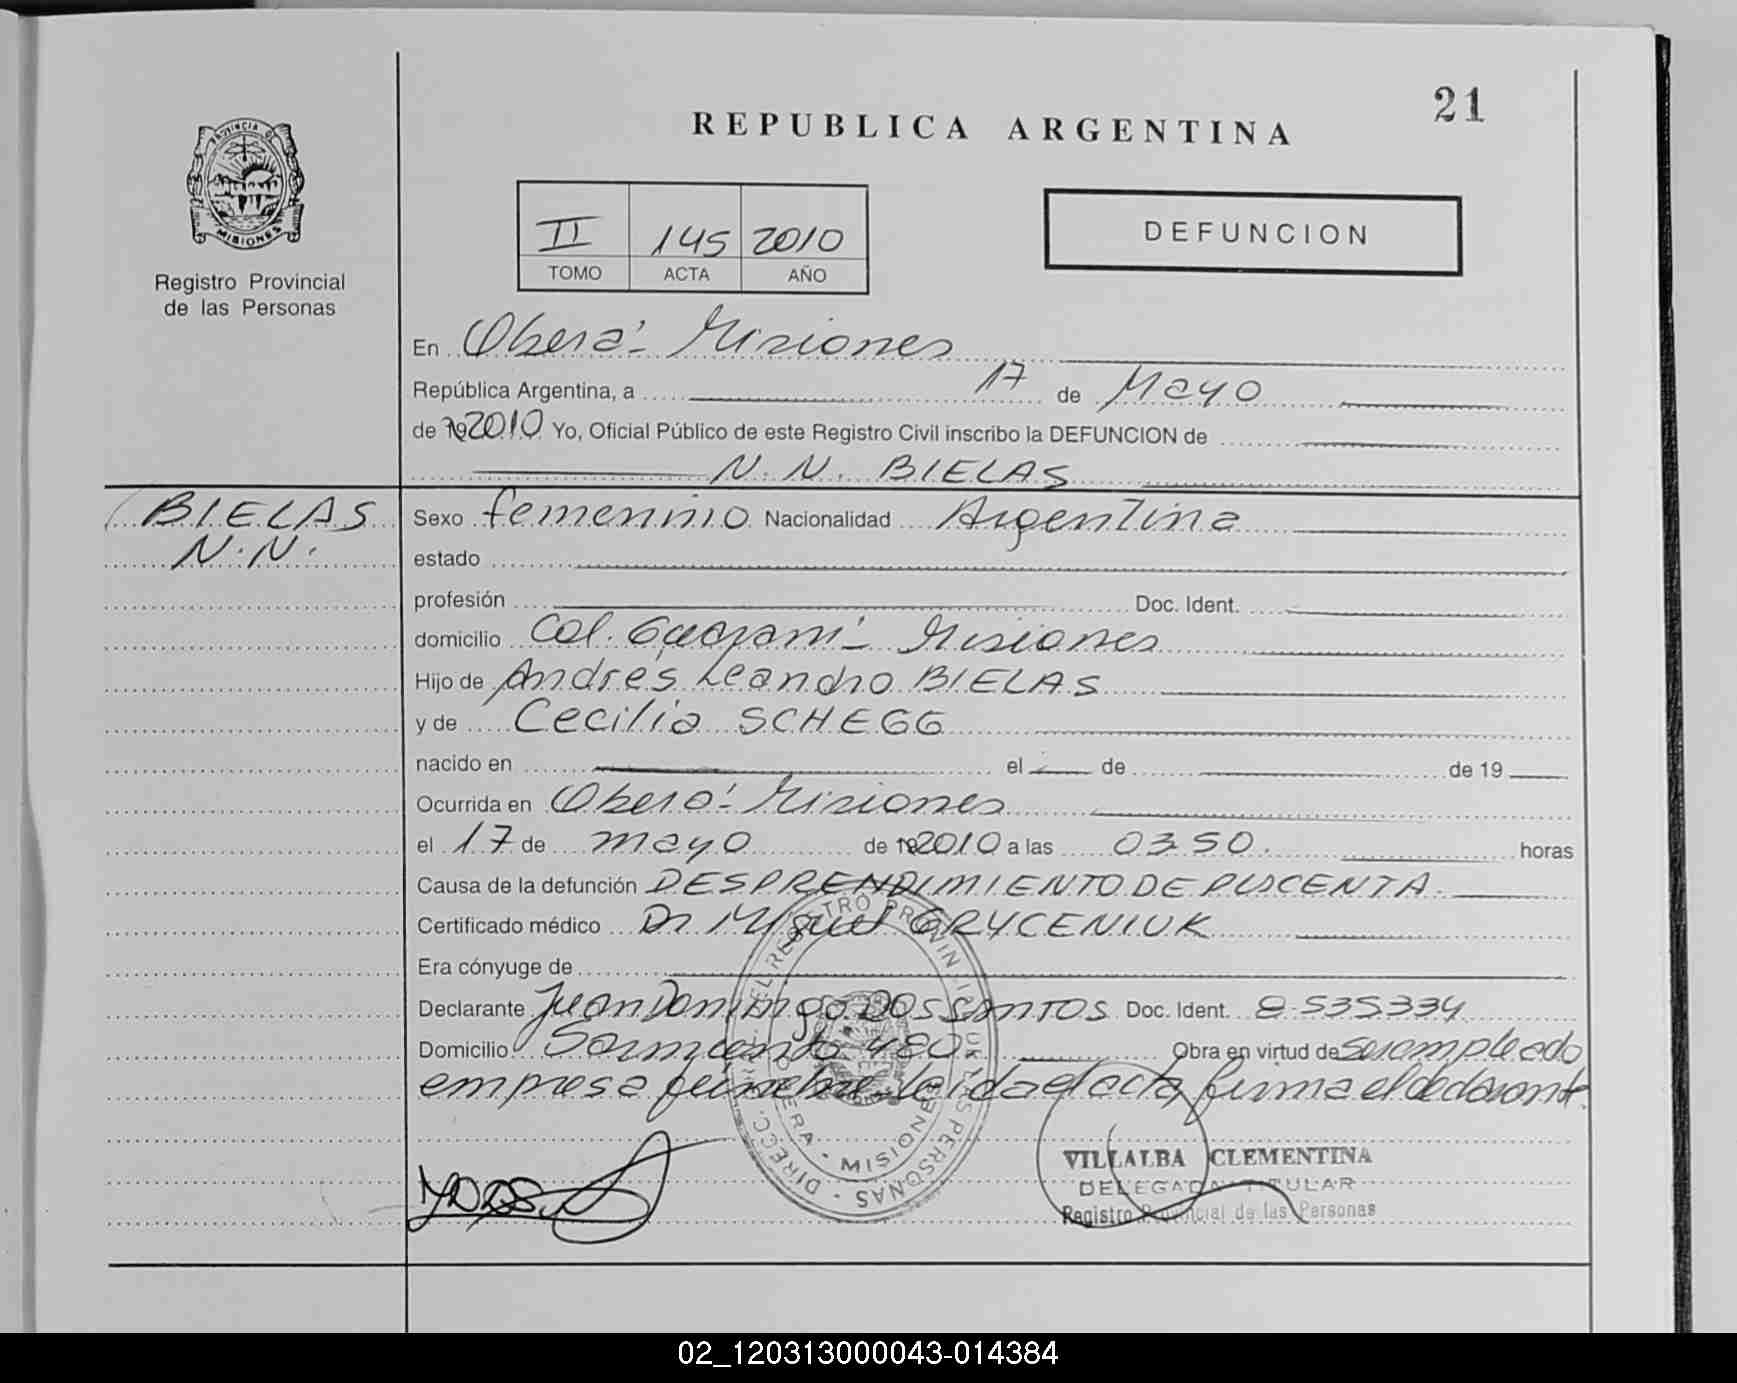 21
REPUBLICA ARGENTINA
PROVINCIA DE
MISIONES
Registro Provincial
de las Personas
II 145 2010
TOMO ACTA AÑO
DEFUNCION
En Oberá - Misiones
República Argentina, a 17 de Mayo
de 192010 Yo, Oficial Público de este Registro Civil inscribo la DEFUNCION de
N. N. BIELAS
BIELAS
N. N.
Sexo femenino Nacionalidad Argentina
estado
profesión Doc. Ident.
domicilio Col. Guaraní - Misiones
Hijo de Andrés Leandro BIELAS
y de Cecilia SCHEGG
nacido en el de de 19
Ocurrida en Oberá - Misiones
el 17 de mayo de 192010 a las 03 50. horas
Causa de la defunción DESPRENDIMIENTO DE PLACENTA.
Certificado médico Dr Miguel GRYCENIUK
Era cónyuge de
Declarante Juan Domingo DOS SANTOS Doc. Ident. 8.535.334
Domicilio Sarmiento 480. Obra en virtud de ser empleado
empresa fúnebre leída el acta, firma el declarante.
DIRECC. DEL REGISTRO PROVINCIAL DE LAS PERSONAS
OBERA - MISIONES
VILLALBA CLEMENTINA
DELEGADA TITULAR
Registro Provincial de las Personas
02_120313000043-014384